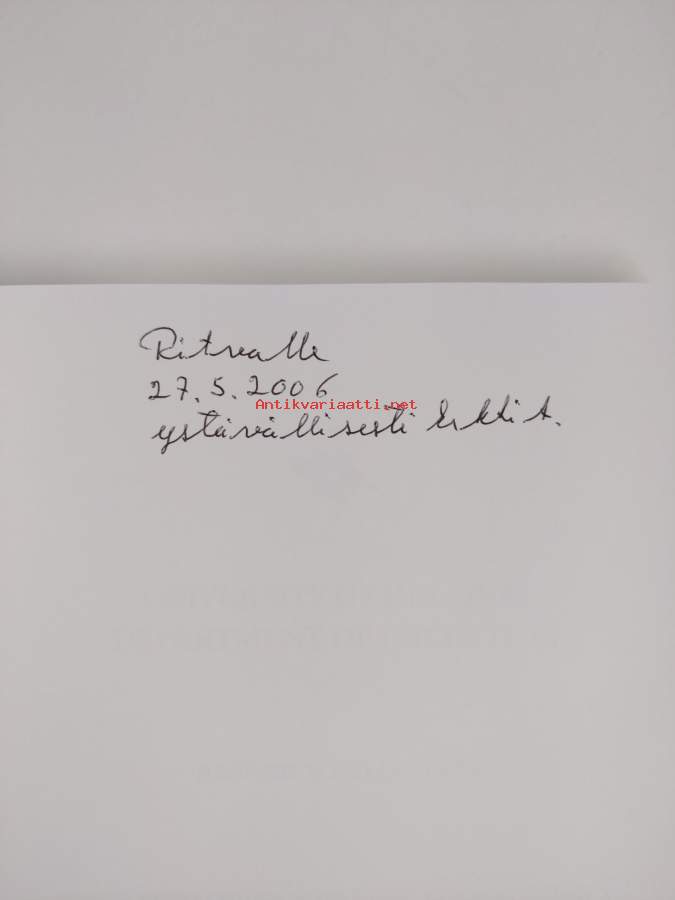 Ritvalle
27.5.2006
Antikvariaatti.net
ystävällisesti Erkki A.